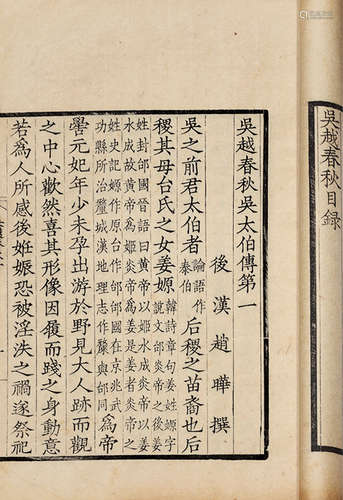 吳越春秋目録
吳越春秋吳太伯傳第一
後漢趙曄撰
吳之前君太伯者論語作泰伯后稷之苗裔也后
稷其母台氏之女姜嫄韓詩章句姜姓嫄字說文邰炎帝之後姜
姓封邰國晉語曰黃帝以姬水成炎帝以姜
水成故黃帝為姬炎帝為姜是姜者炎帝之
姓史記嫄作原台作邰邰國在京兆武
功縣所治釐城漢地理志作斄與邰同為帝
嚳元妃年少未孕出游於野見大人跡而觀
之中心歡然喜其形像因履而踐之身動意
若為人所感後姙娠恐被淫泆之禍遂祭祀